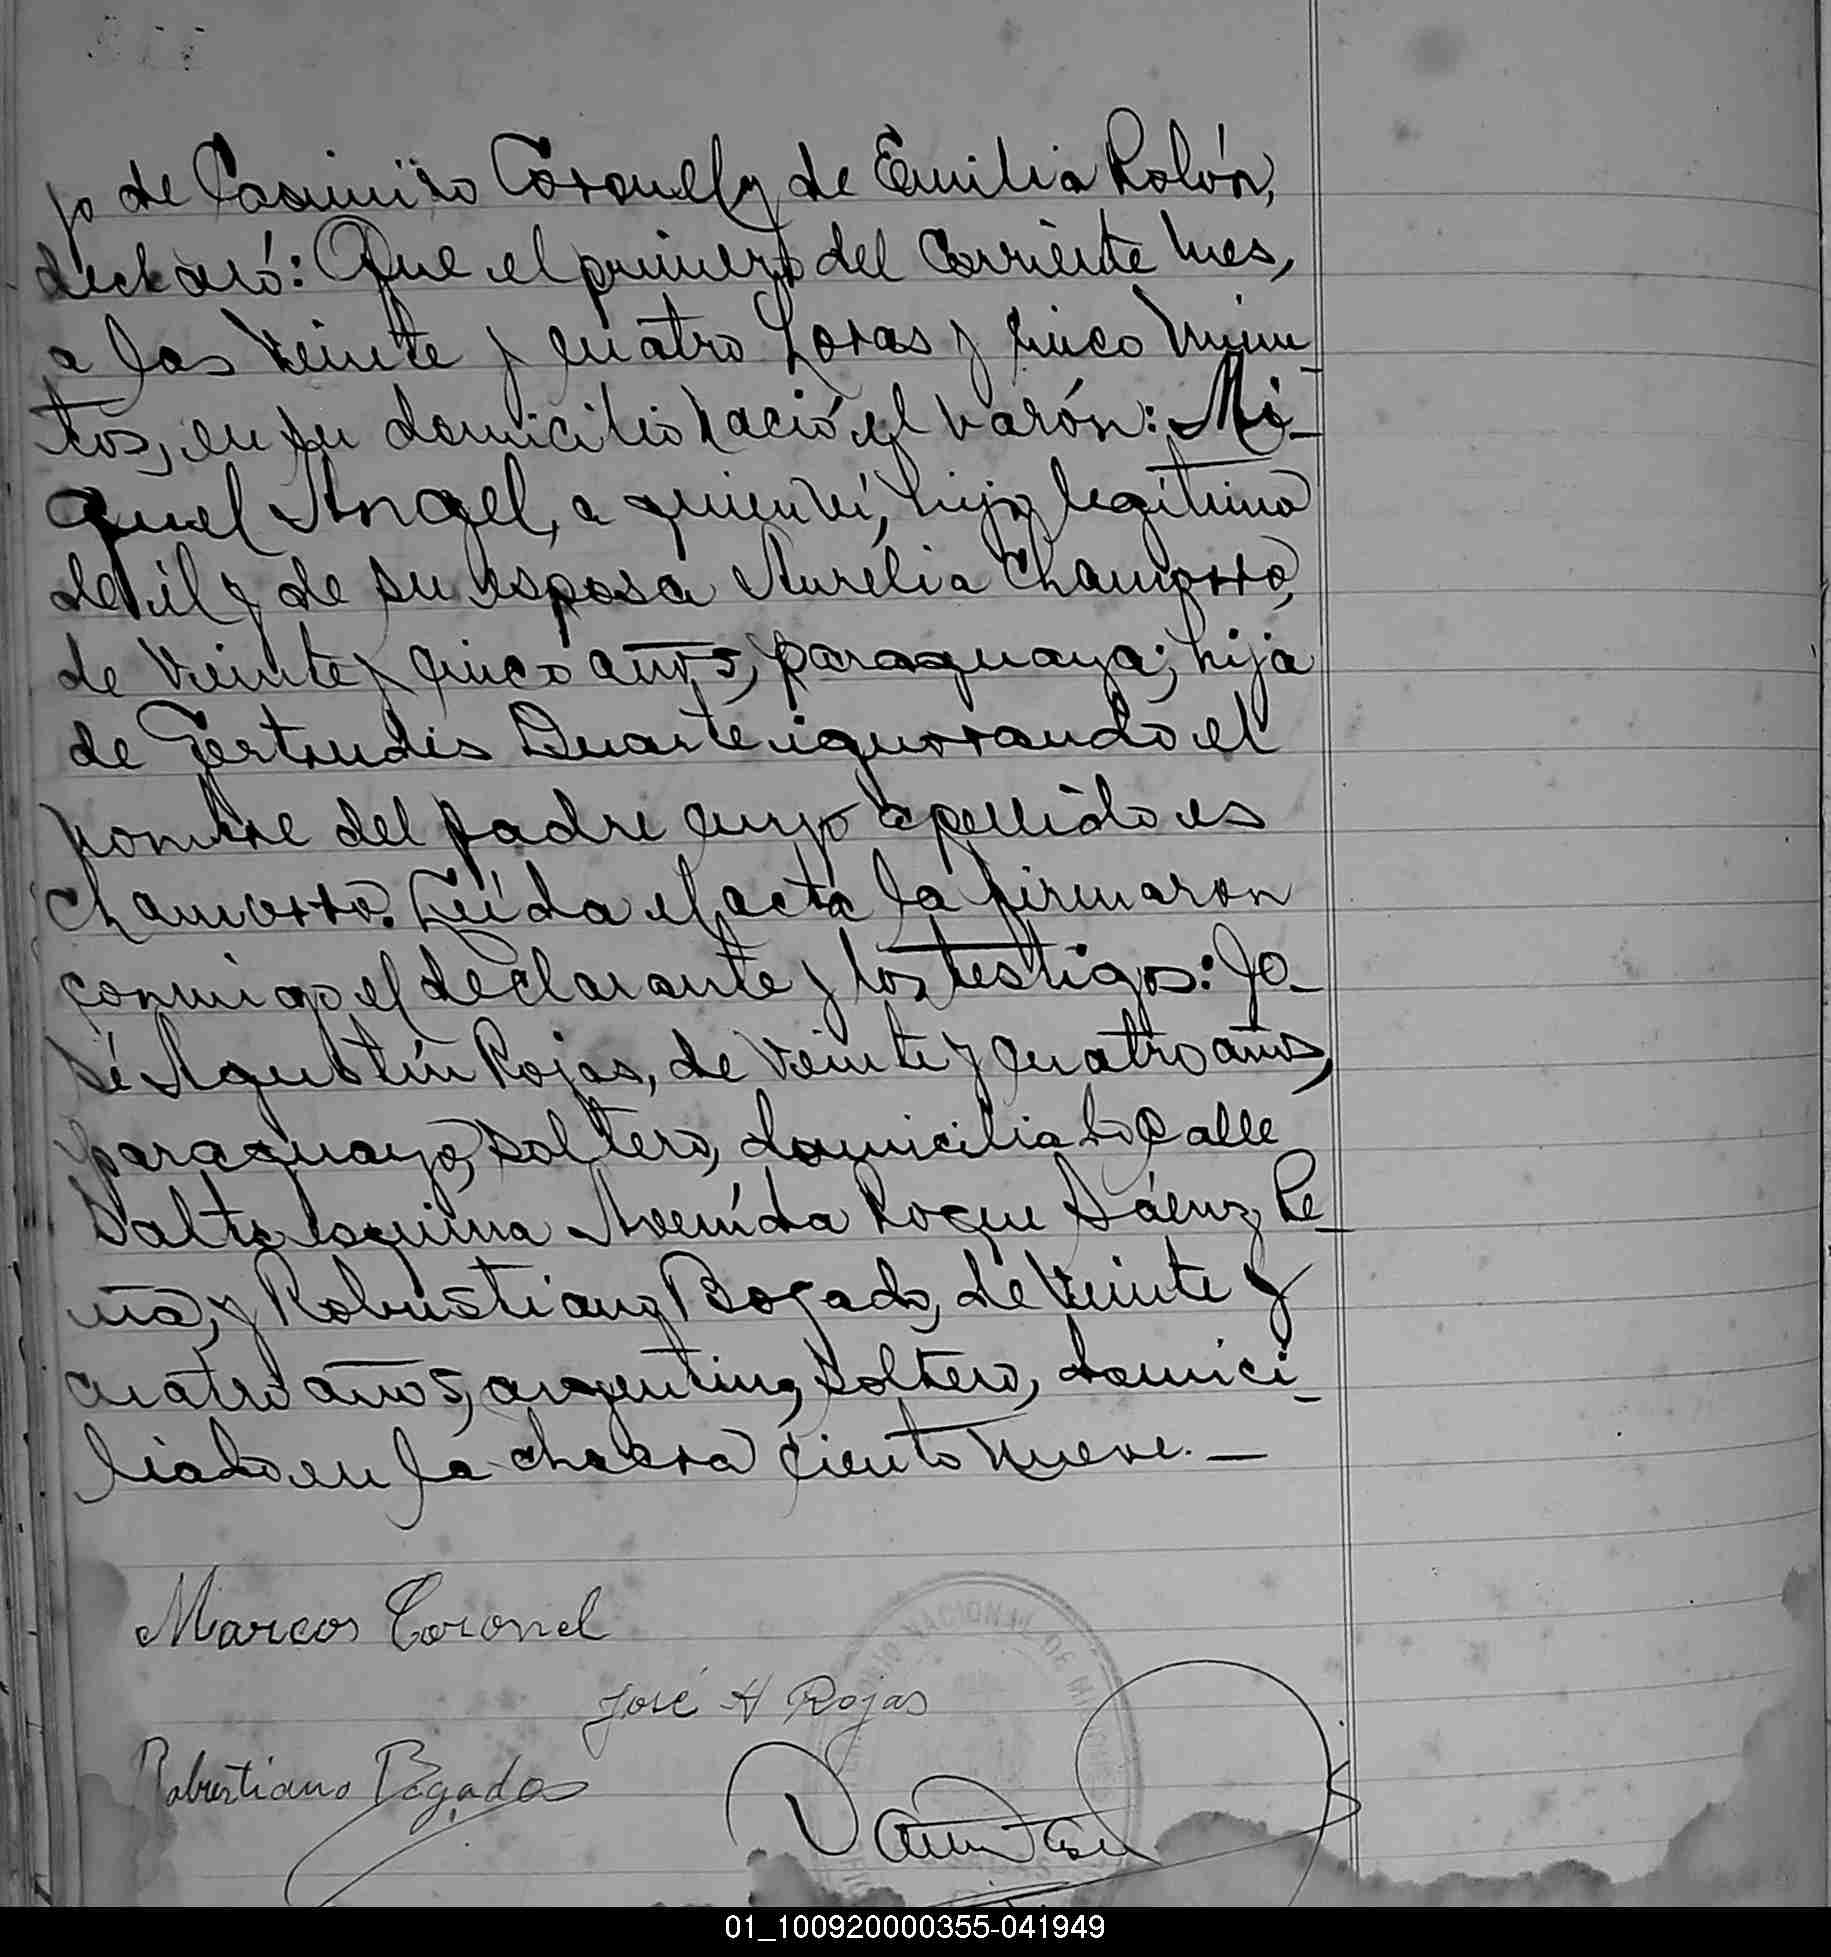 jo de Casimiro Coronel y de Emilia Rolón,
declaró: Que el primero del corriente mes,
a las veinte y cuatro horas y cinco minu
tos, en su domicilio nació el varón: Mi-
guel Angel, a quien ví, hijo legítimo
de él y de su esposa Aurelia Chamorro,
de veinte y cinco años, paraguaya; hija
de Gertrudis Duarte ignorando el
nombre del padre cuyo apellido es
Chamorro. Leída el acta la firmaron
conmigo el declarante y los testigos: Jo-
sé Agustín Rojas, de veinte y cuatro años,
paraguayo, soltero, domiciliado calle
Salta esquina Avenída Roque Sáenz Pe-
ña, y Robustiano Bogado, de veinte y
cuatro años, argentino, soltero, domici-
liado en la chacra ciento nueve. —
Marcos Coronel
NACIONAL DE MI
José A Rojas
Robustiano Bogado
01_100920000355-041949